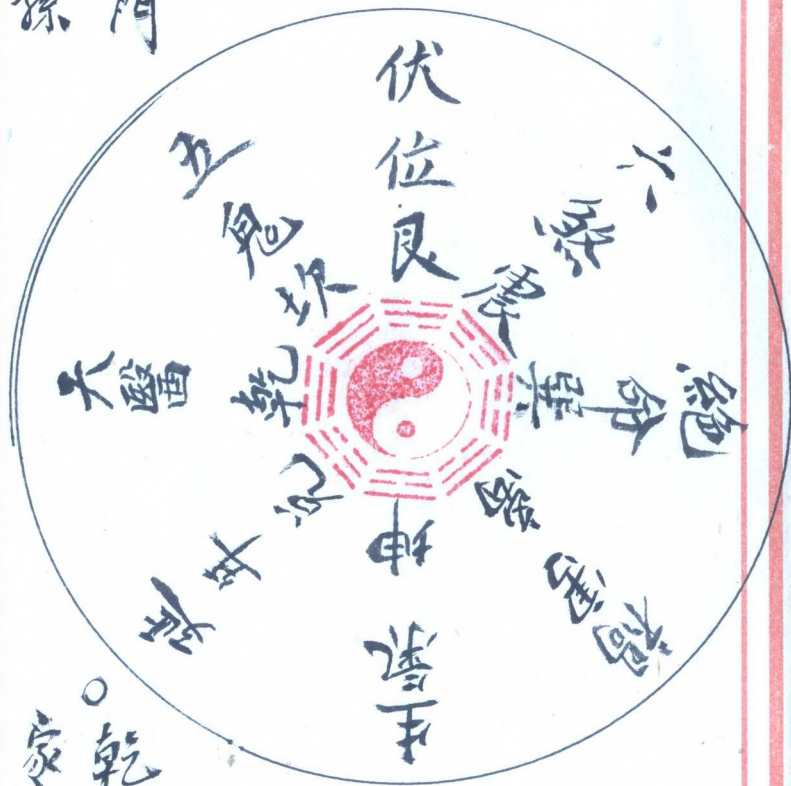 門
孫
伏位艮
六煞震
絕命巽
禍害离
生氣坤
延年兌
天醫乾
五鬼坎
○乾
家